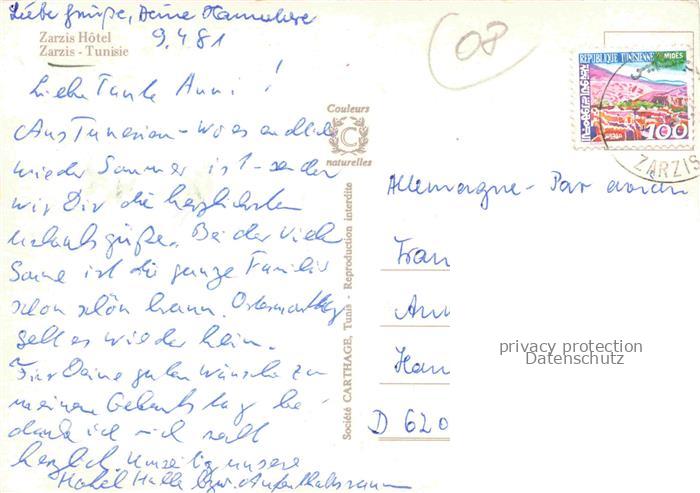 Liebe Grüße, Deine Hannelore
Zarzis Hôtel
Zarzis - Tunisie
9.4.81
Liebe Tante Anni!
Aus Tunesien - wo es endlich
wieder Sommer ist - senden
wir Dir die herzlichsten
Urlaubsgrüße. Bei der vielen
Sonne ist die ganze Familie
schon schön braun. Ostermontag
geht es wieder heim.
Für Deine guten Wünsche zu
meinem Geburtstag be-
danke ich mich recht
herzlich. Umseitig unsere
Hotel Halle bzw. Aufenthaltsraum
Couleurs
C
naturelles
Société CARTHAGE, Tunis - Reproduction interdite
08
REPUBLIQUE TUNISIENNE
MIDES
100
ZARZIS
Allemagne - Par avion
Frau
Ann
Han
D 620
privacy protection
Datenschutz